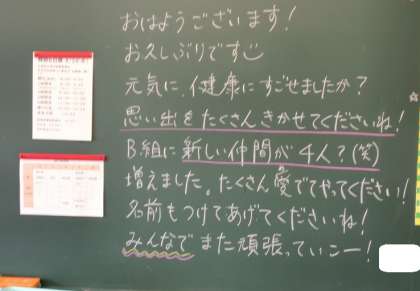 おはようございます!
お久しぶりです
元気に、健康にすごせましたか?
思い出をたくさんきかせてくださいね!
B組に新しい仲間が4人?(笑)
増えました。たくさん愛でてやってください!
名前もつけてあげてくださいね!
みんなでまた頑張っていこー!